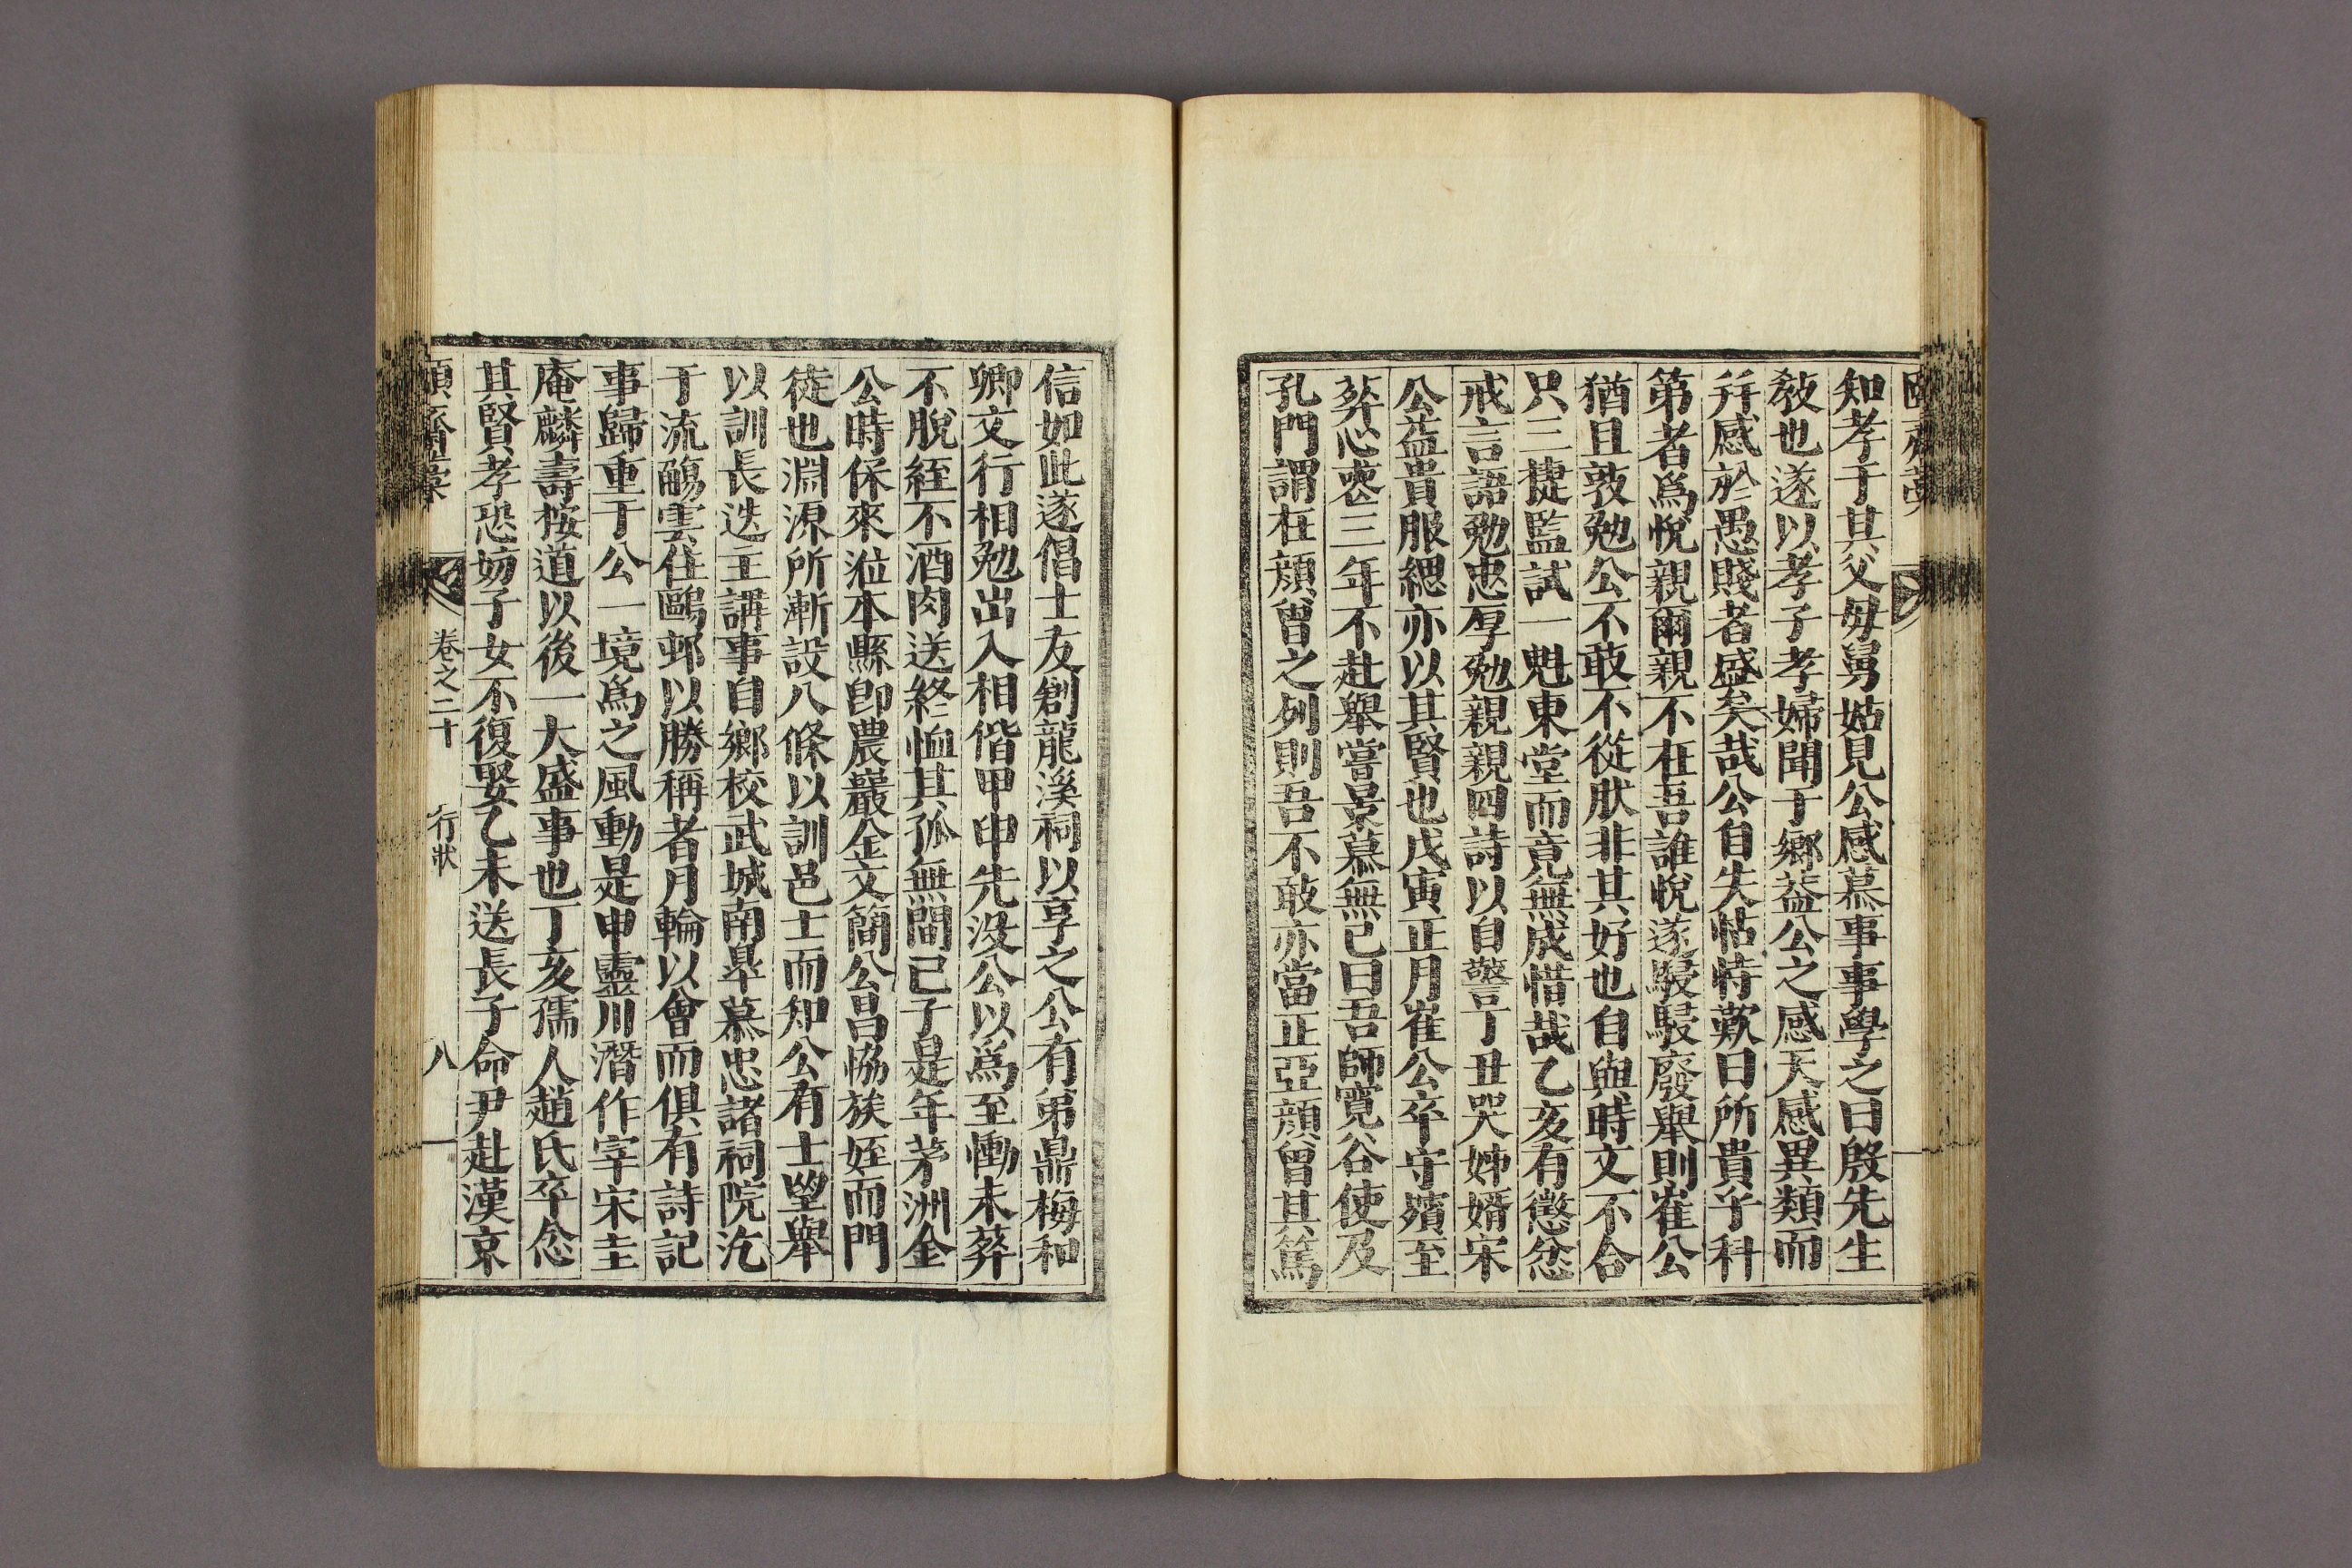 知孝于其父母舅姑見公感慕事事學之曰殷先生
敎也遂以孝子孝婦聞于鄉葢公之感天感異類而
幷感於愚賤者盛矣哉公自失怙恃歎曰所貴乎科
第者爲悅親爾親不在吾誰悅遂駸駸廢擧則崔公
猶且敦勉公不敢不從狀非其好也自與時文不合
只三捷監試一魁東堂而竟無成惜哉乙亥有懲忿
戒言語勉忠厚勉親親四詩以自警丁丑哭姊婿宋
公葢貴服緦亦以其賢也戊寅正月崔公卒守殯至
葬心喪三年不赴擧嘗景慕無已曰吾師寬谷使及
孔門謂在顔曾之列則吾不敢亦當正亞顔曾其篤
信如此遂倡士友創龍溪祠以享之公有弟鼎梅和
卿文行相勉出入相偕甲申先沒公以爲至慟未葬
不脫絰不酒肉送終恤其孤無間己子是年茅洲金
公時保來涖本縣卽農巖金文簡公昌協族姪而門
徒也淵源所漸設八條以訓邑士而知公有士望擧
以訓長迭主講事自鄉校武城南臯慕忠諸祠院汔
于流觴雲住鷗邨以勝稱者月輪以會而俱有詩記
事歸重于公一境爲之風動是申靈川潛作宰宋圭
庵麟壽按道以後一大盛事也丁亥孺人趙氏卒念
其賢孝恐妨子女不復娶乙未送長子命尹赴漢京
卷之二十　行狀　八